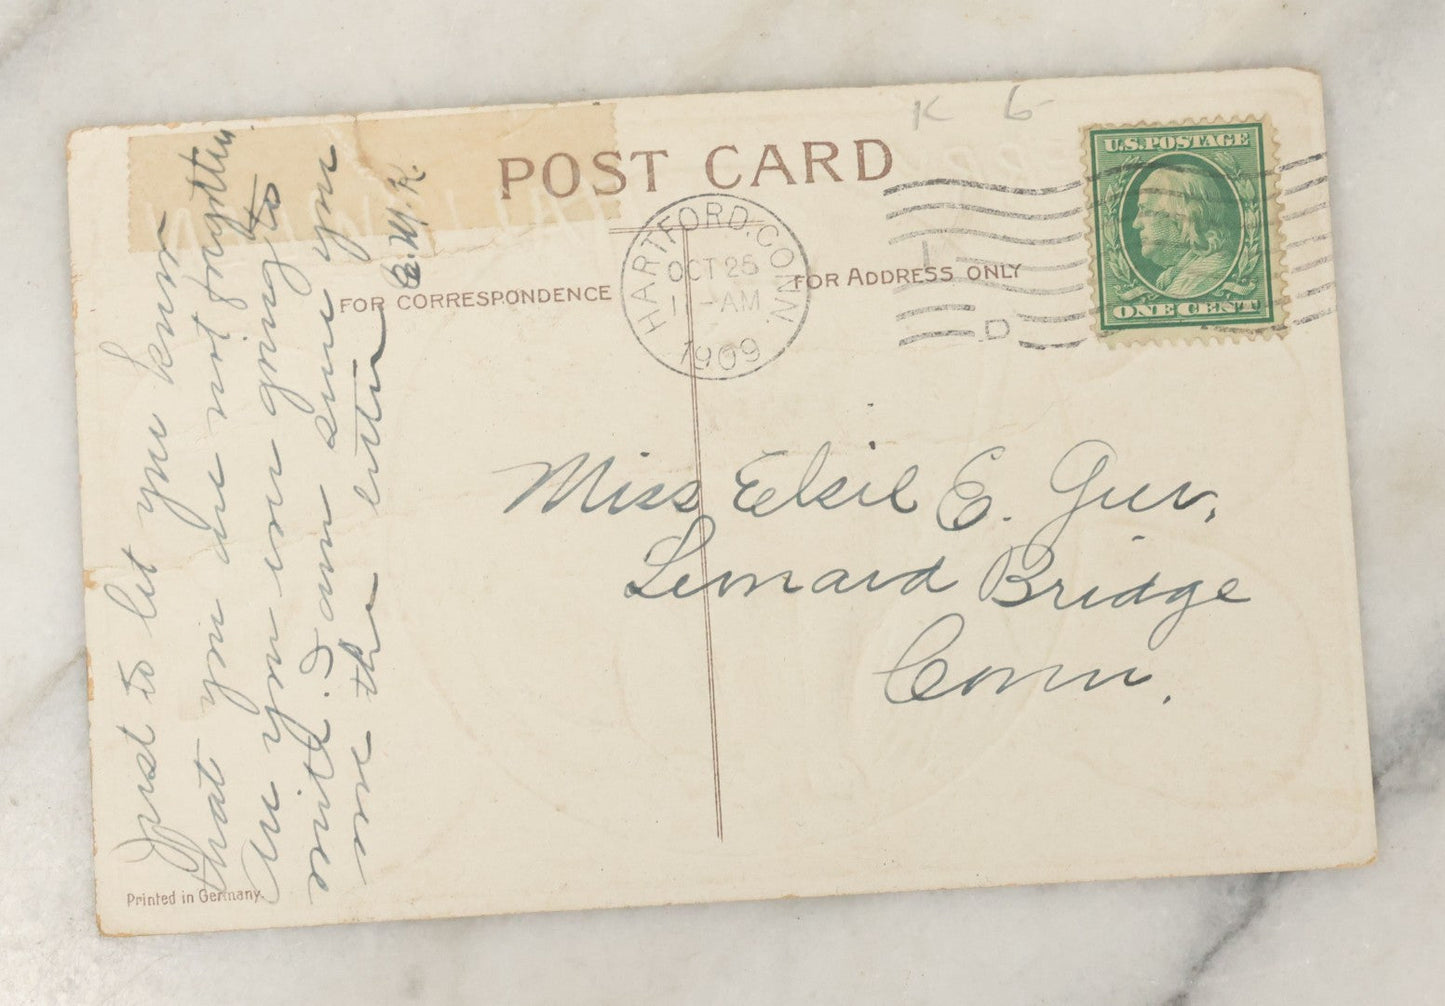 K 6
POST CARD
U.S. POSTAGE
ONE CENT
HARTFORD, CONN.
OCT 25
1 -AM
1909
D
FOR CORRESPONDENCE
FOR ADDRESS ONLY
Just to let you know
that you are not forgotten.
are you ever going to
write. I am sure you
owe the letter
E. W. K.
Miss Elsie E. Geer,
Leonard Bridge
Conn.
Printed in Germany.